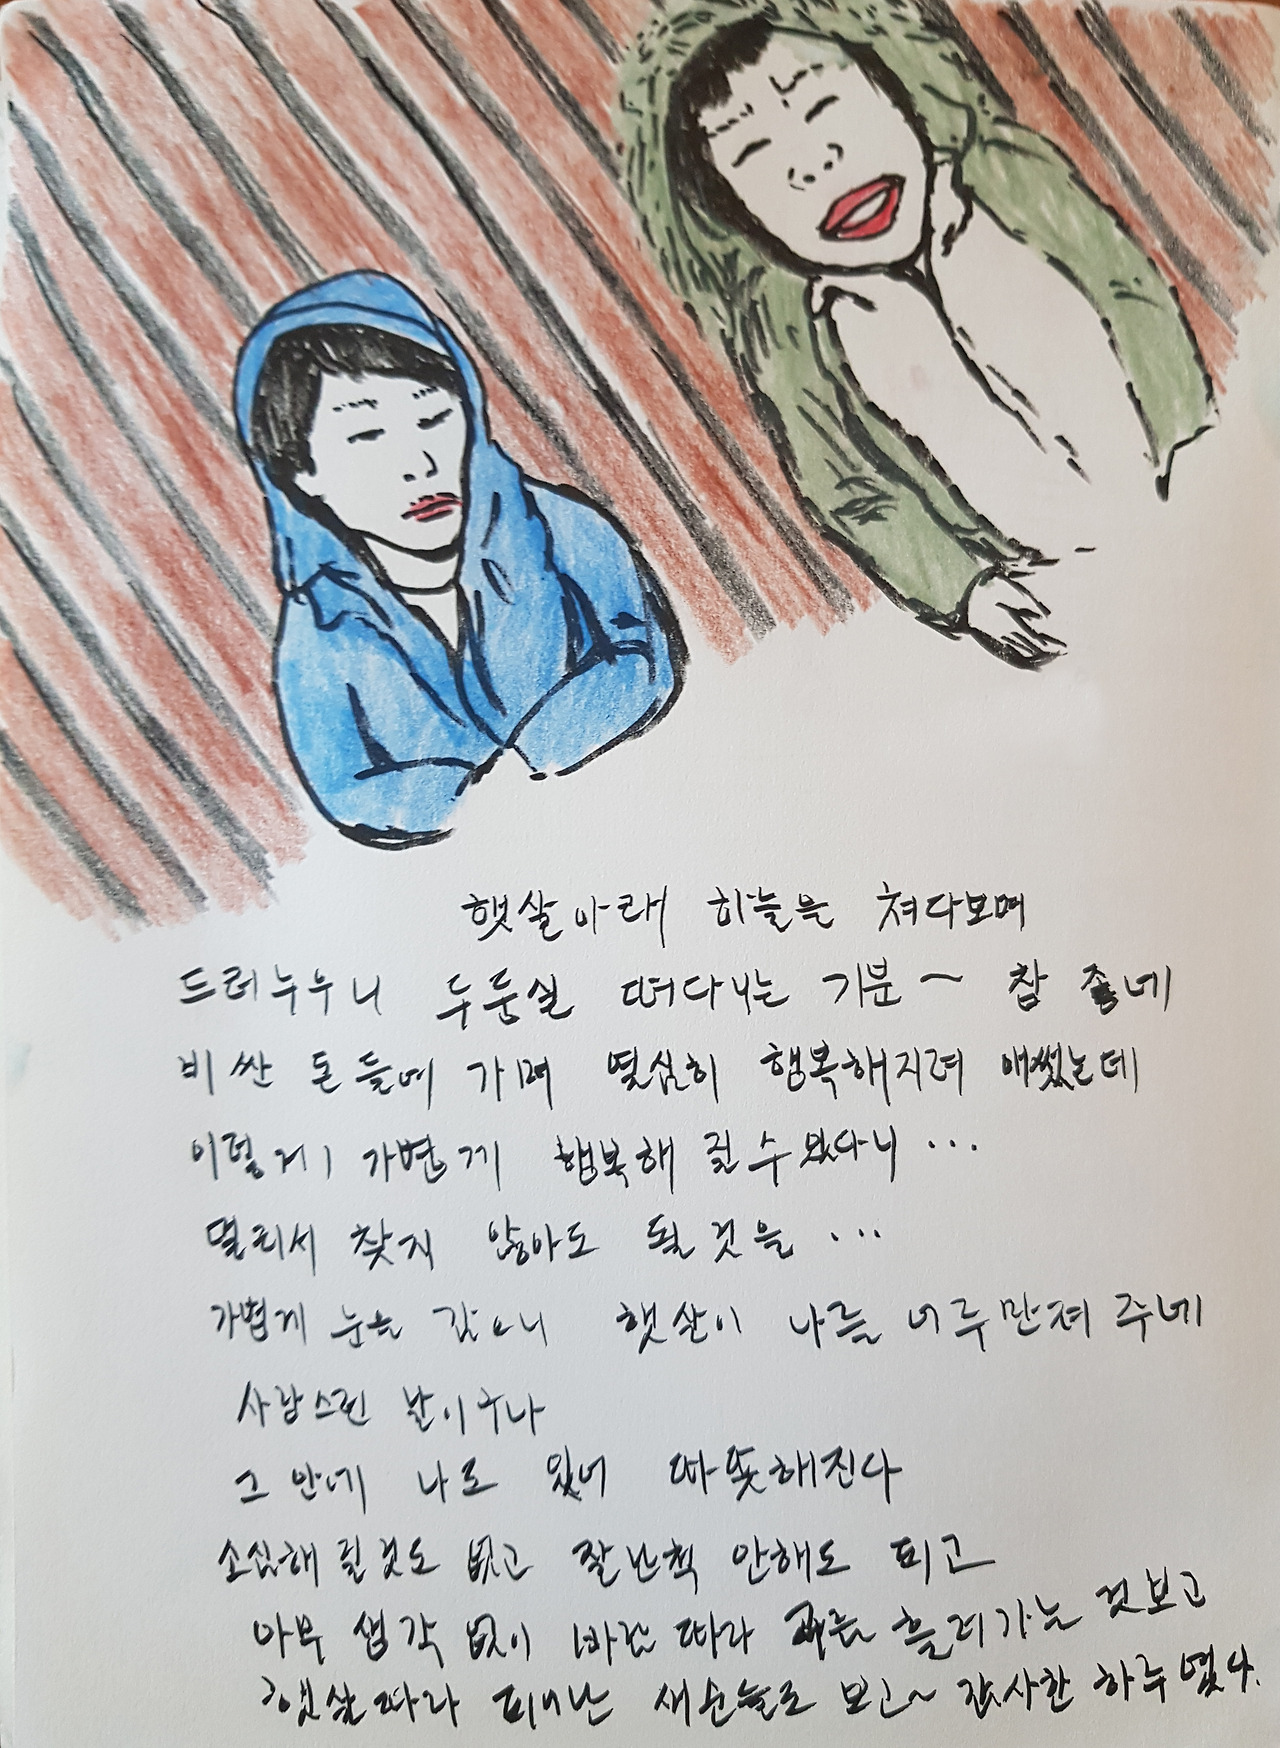 햇살아래 하늘을 쳐다보며
드러누우니 두둥실 떠다니는 기분~ 참 좋네
비싼 돈들여 가며 열심히 행복해지려 애썼는데
이렇게 가볍게 행복해 질 수 있다니...
멀리서 찾지 않아도 될 것을...
가볍게 눈을 감으니 햇살이 나를 어루만져 주네
사랑스런 날이구나
그 안에 나도 있어 따뜻해진다
소심해 질것도 없고 잘난척 안해도 되고
아무 생각 없이 바람 따라 구름 흘러가는 것보고
햇살따라 피어난 새순들도 보고~ 감사한 하루였다.